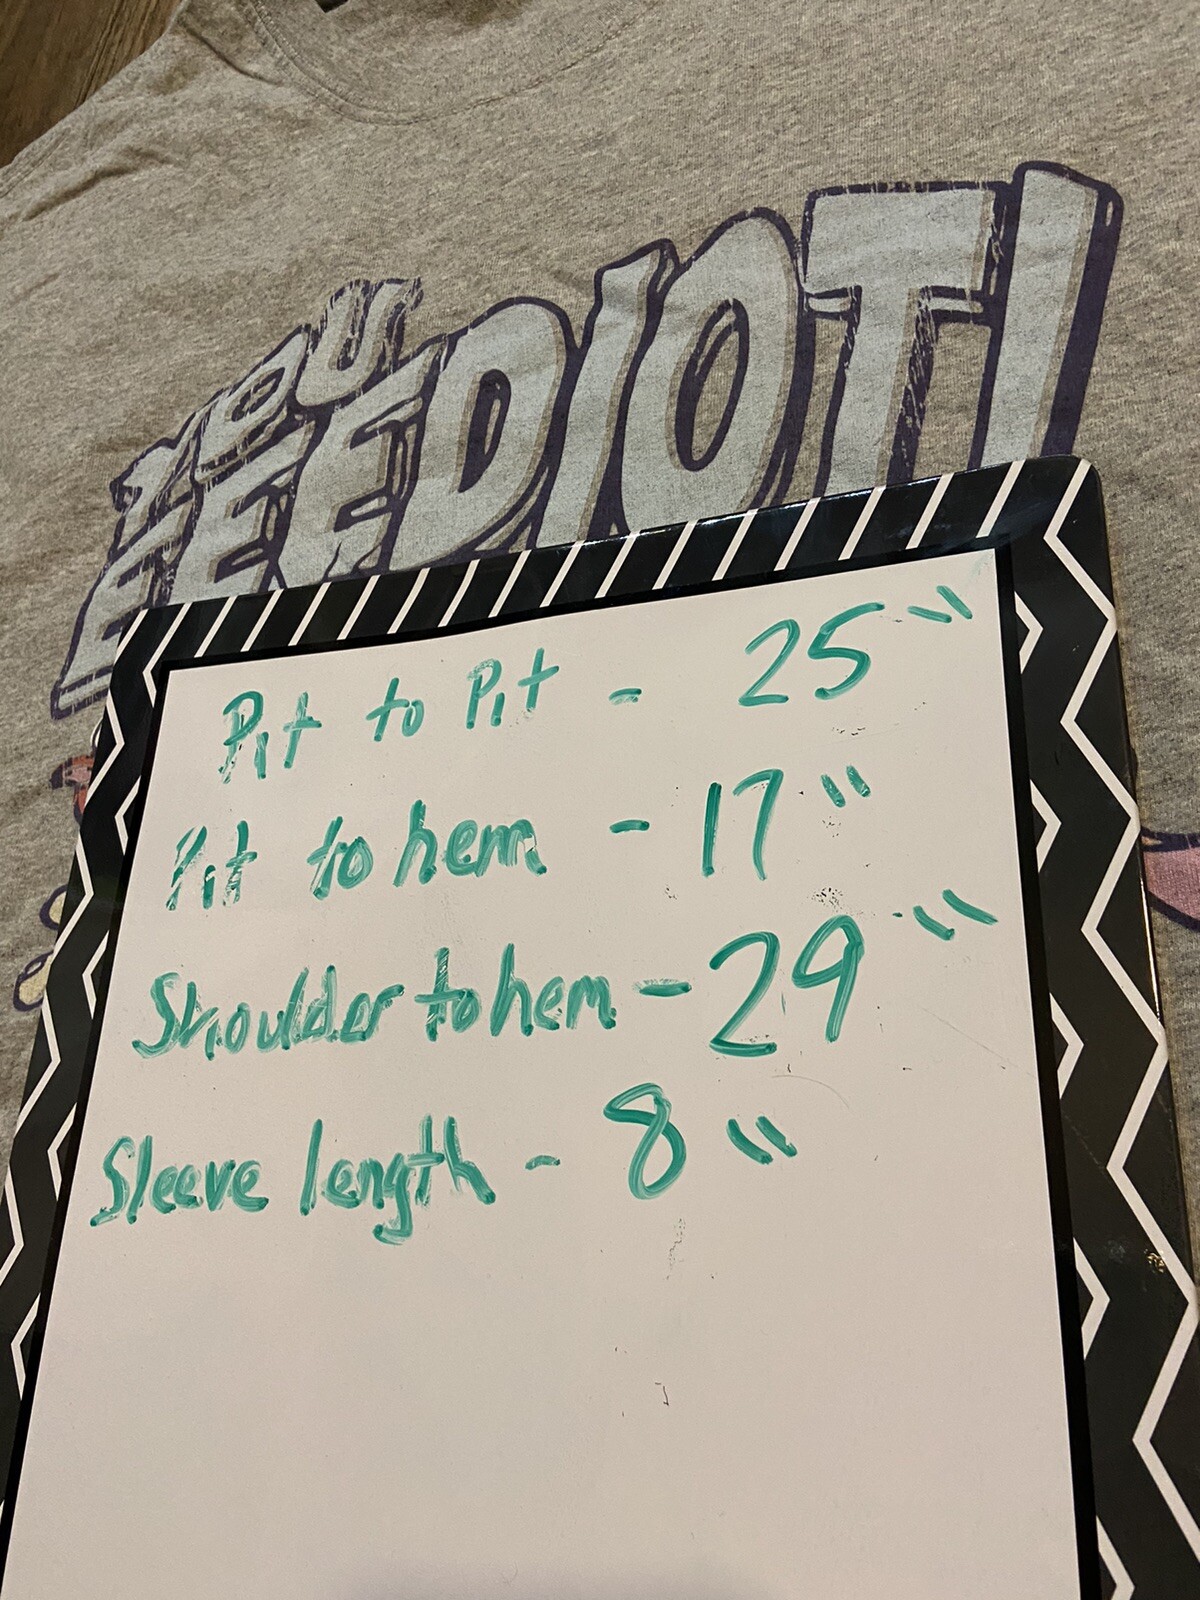 YOU
EEEDIOT!
Pit to Pit - 25"
Pit to hem - 17"
Shoulder to hem - 29"
Sleeve length - 8"